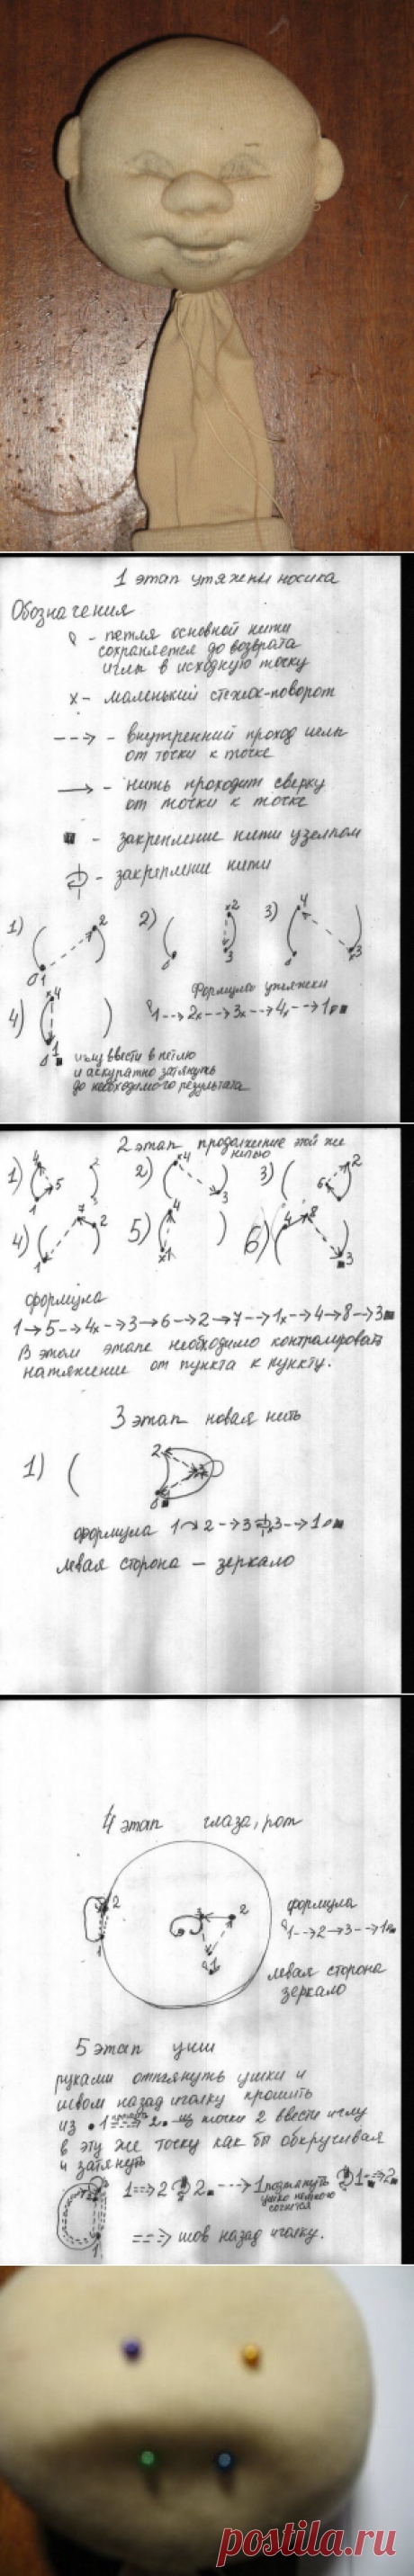 1 этап утяжки носика
Обозначения
- петля основной нити
сохраняется до возврата
иглы в исходную точку
x - маленький стежок-поворот
---> - внутренний проход иглы
от точки к точке
—> - нить проходит сверху
от точки к точке
■ - закрепление нити узелком
- закрепление нити
1) 1 2 2) x2 3 3) 4 x3
Формула утяжки
1-->2x-->3x-->4x-->1■
4) x4 1
иглу ввести в петлю
и аккуратно затянуть
до необходимого результата
2 этап продолжение этой же
нитью
1) 4 5 1 2 3 2) x4 3 3) 2 6
4) 7 2 1 5) 4 x1 6) 4 8 3
формула
1→5-->4x-->3→6-->2→7-->1x-->4→8-->3■
В этом этапе необходимо контролировать
натяжение от пункта к пункту.
3 этап новая нить
1) 2 3
формула 1 2-->3 3-->1■
левая сторона — зеркало
4 этап глаза, рот
2 1 3 2 1
формула
1-->2→3-->1■
левая сторона
зеркало
5 этап уши
руками оттянуть ушки и
швом назад иголку прошить
из •1 ==> 2• из точки 2 ввести иглу
в эту же точку как бы обкручивая
и затянуть
1==>2 2■-->1 подтянуть 1==>2■
ушко немного
согнется
==> шов назад иголку.
postila.ru